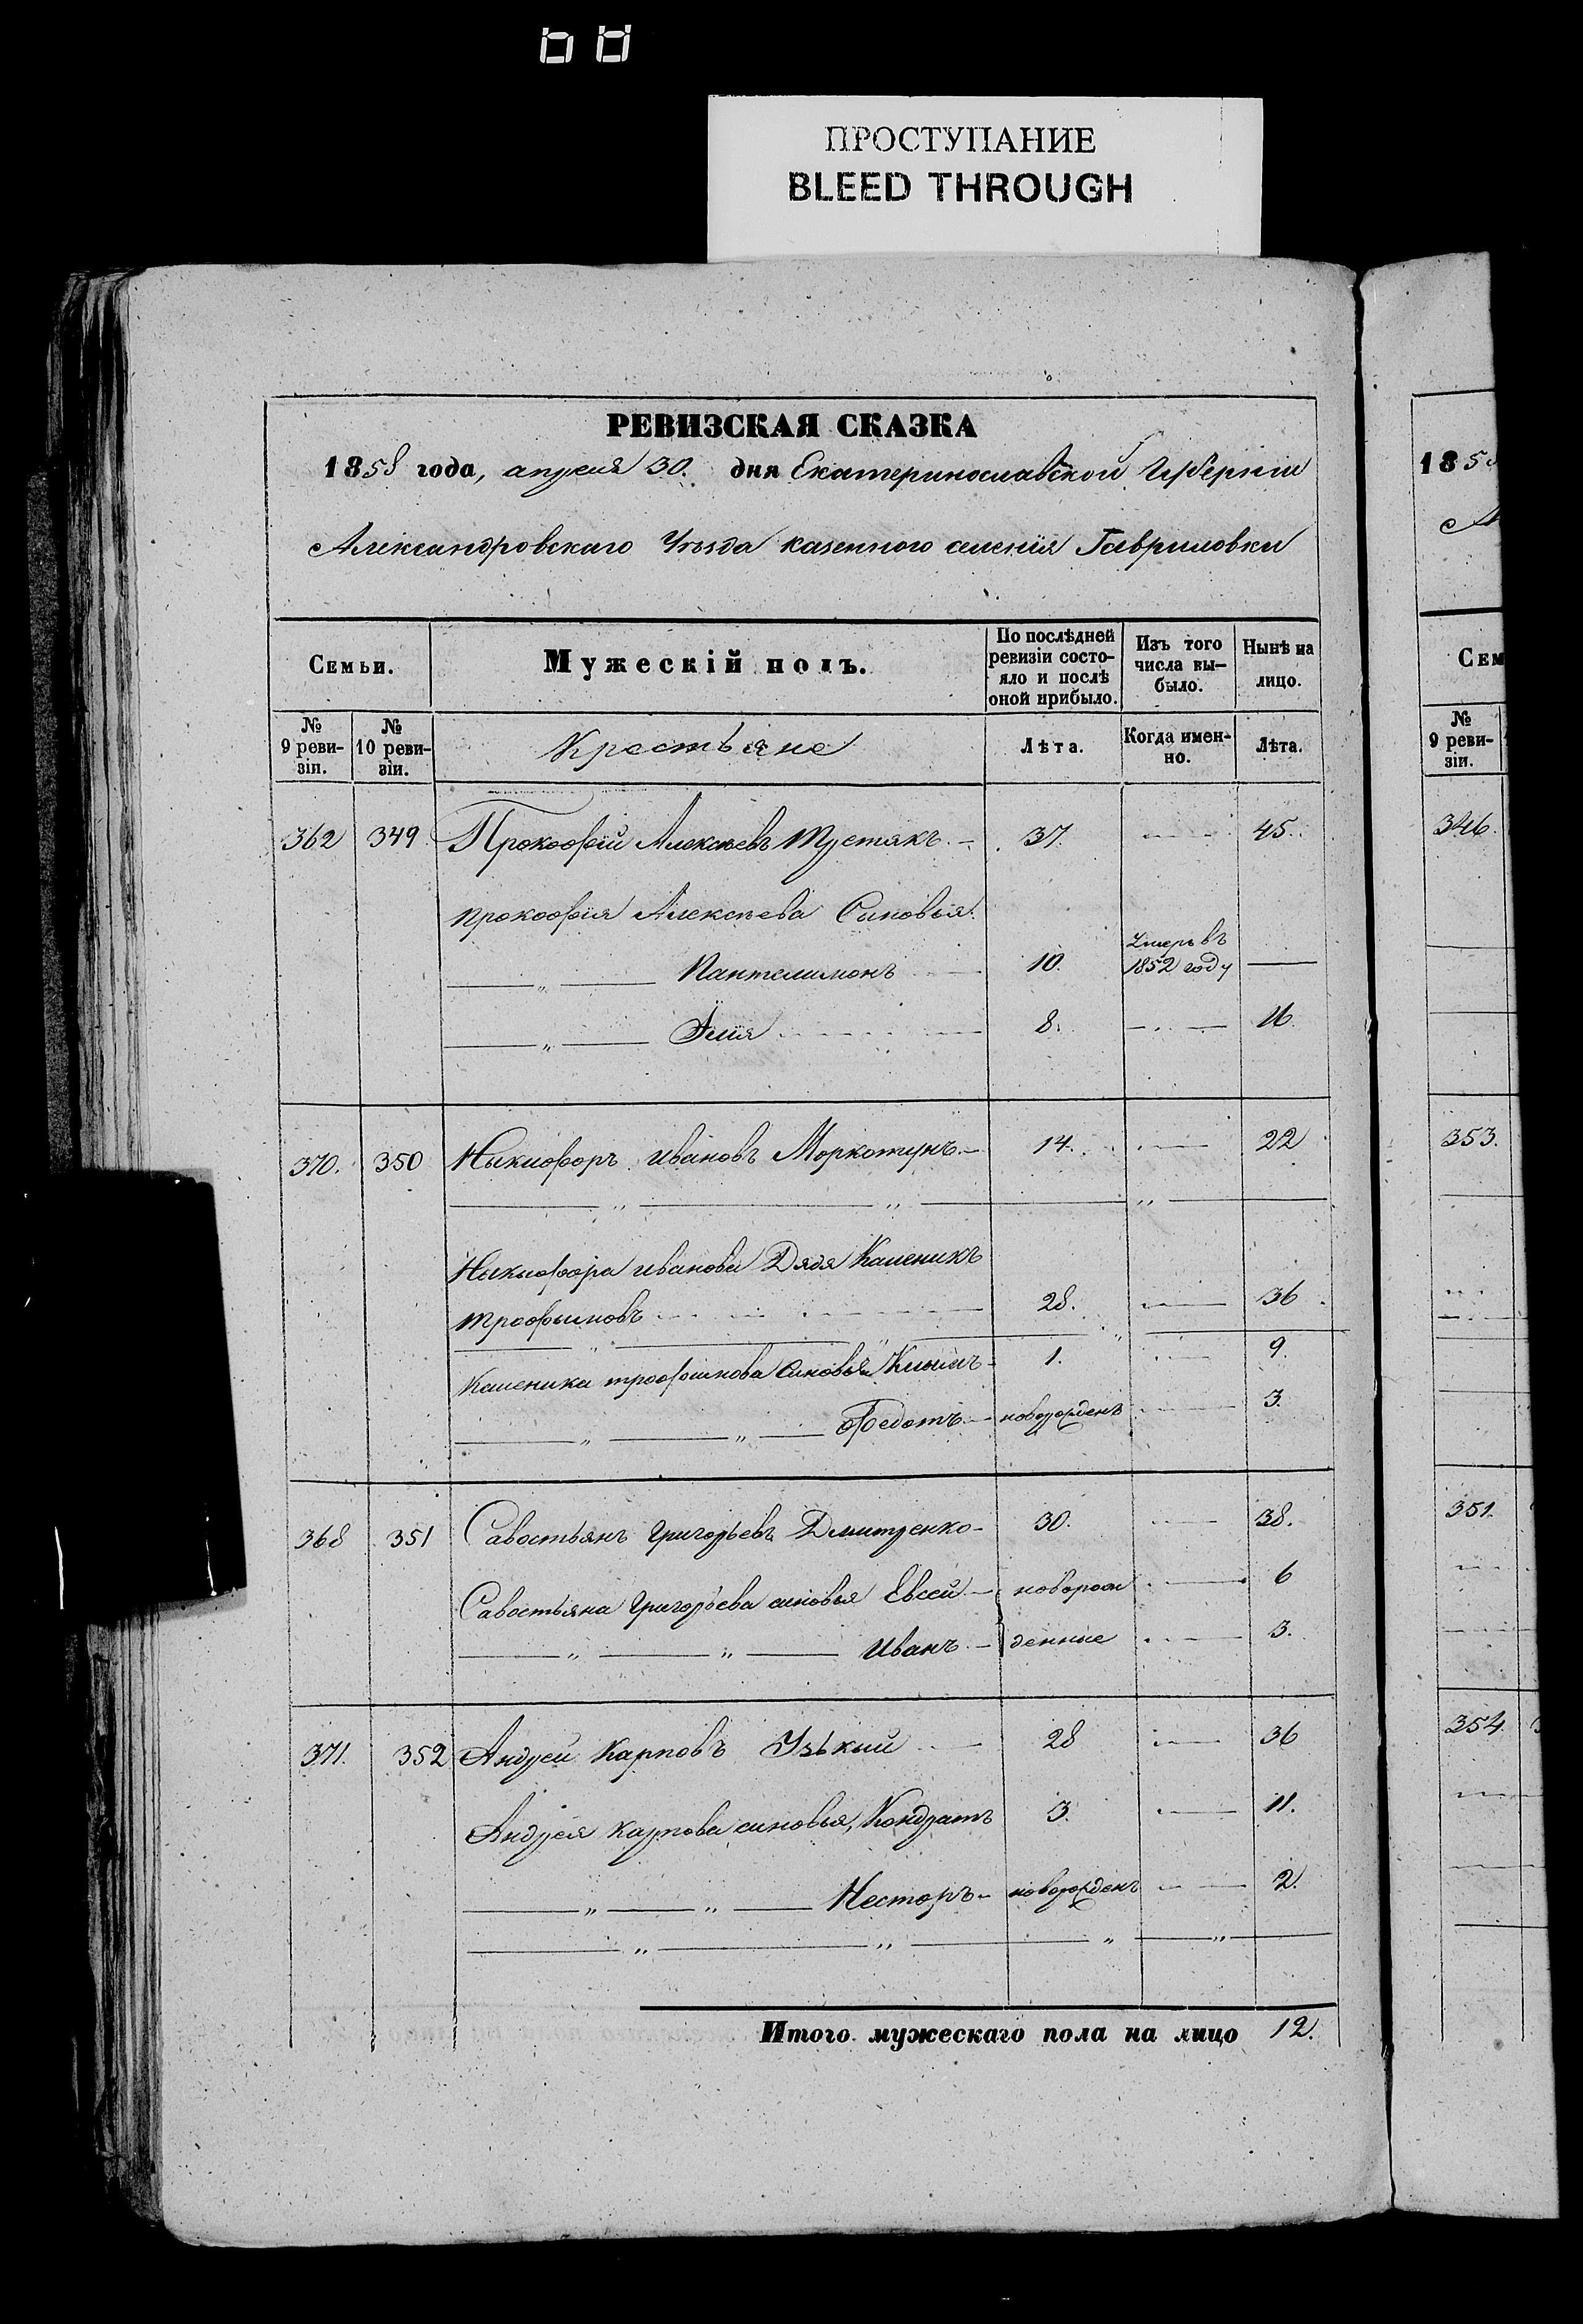 ПРОСТУПАНИЕ
BLEED THROUGH
РЕВИЗСКАЯ СКАЗКА
1858 года, апреля 30. дня Екатеринославской Губерніи
Александровскаго Уѣзда казенного селенія Гавриловки
Семьи. Мужескій полъ. По послѣдней ревизіи состояло и послѣ оной прибыло. Изъ того числа выбыло. Нынѣ на лицо.
№ 9 ревизіи. № 10 ревизіи. Крестьяне Лѣта. Когда именно. Лѣта.
362 349 Прокофій Алексѣевъ 37. 45.
Прокофія Алексѣева Синовья.
Умеръ въ
„ Пантелимонъ 10. 1852 году
„ Илія 8. 16.
370. 350 Никифоръ Ивановъ Моркотунъ 14. 22
Никифора Иванова Дядя Каленикъ
Трофимовъ 28. 36
Каленика Трофимова Синовья Климъ 1. 9.
„ „ Федотъ новорожденъ 3.
368 351 Савостьянъ Григорьевъ Дмитренко 30. 38.
Савостьяна Григорьева синовья Евсей новорож 6
„ „ Иванъ денние 3.
371. 352 Андрей Карповъ Узький 28 36
Андрея Карпова синовья, Кондратъ 3. 11.
„ „ Несторъ новорожденъ 2.
Итого мужескаго пола на лицо 12.
185
Сем
№ 9 ревизіи.
346.
353.
351.
354.